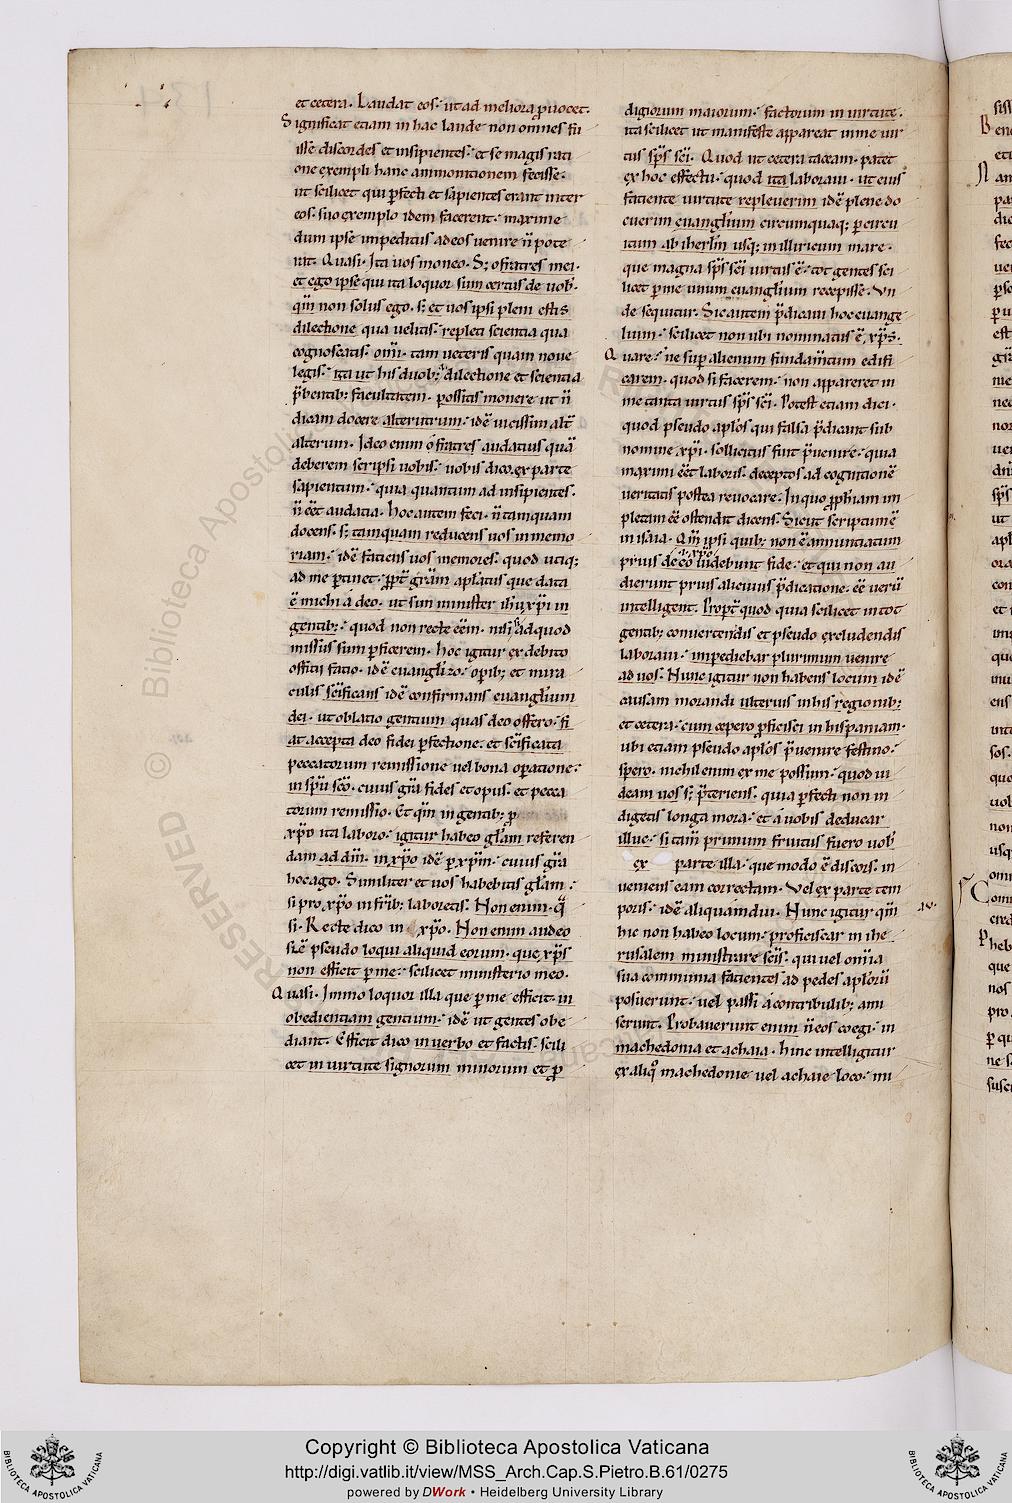 et cetera. Laudat eos. ut ad meliora ꝓuocet.
Significat etiam in hac laude non omnes fu
isse discordes et insipientes. et se magis rati
one exempli hanc ammonitionem fecisse.
ut scilicet qui ꝑfecti et sapientes erant inter
eos. suo exemplo idem facerent. maxime
dum ipse impeditus ad eos uenire n̄ pote
rat. Quasi. Ita uos moneo. S; o fratres mei.
et ego ipse qui ita loquor sum certus de uob.
qm̄ non solus ego. s; et uos ipsi pleni estis
dilectione qua uelitis. repleti scientia qua
cognoscatis. om̄i. tam ueteris quam noue
legis. ita ut his duob; dilectione et scientia
p̄bentib; facultatem. possitis monere ut n̄
dicam docere alterutrum. idē uicissim alt̄
alterum. Ideo enim o fratres audatius quā
deberem scripsi uobis. uobis dico. ex parte
sapientum. quia quantum ad insipientes.
n̄ eēt audatia. hoc autem feci. n̄ tamquam
docens. s; tamquam reducens uos in memo
riam. idē faciens uos memores. quod utiq;
ad me ꝑtinet. ꝓpt̄ grām apl̄atus que data
ē michi a deo. ut sim minister ih̄u xp̄i in
gentib;. quod non recte eēm. nisi ad quod
missus sum ꝑficerem. hoc igitur ex debito
officii facio. idē euangl̄izo. oꝑib; et mira
culis sc̄ificans idē confirmans euangl̄ium
dei. ut oblatio gentium quas deo offero. fi
at accepta deo fidei ꝑfectione. et sc̄ificata
peccatorum remissione uel bona oꝑatione.
in sp̄u sc̄o. cuius gr̄a fides et opus. et pecca
torum remissio. Et qm̄ in gentib; ꝓ
xp̄o ita laboro. igitur habeo gl̄am referen
dam ad dm̄. in xp̄o idē ꝑ xp̄m. cuius gr̄a
hoc ago. Similiter et uos habebitis gl̄am.
si pro xp̄o in fr̄ib; laboretis. Non enim. q̄
si. Recte dico in xp̄o. Non enim audeo
sic̄ pseudo loqui aliquid eorum. que xp̄s
non efficit ꝑ me. scilicet ministerio meo.
Quasi. Immo loquor illa que ꝑ me efficit. in
obedientiam gentium. idē ut gentes obe
diant. Efficit dico in uerbo et factis. scili
cet in uirtute signorum minorum et ꝓ
digiorum maiorum. factorum in uirtute.
ita scilicet ut manifeste appareat in me uir
tus sp̄s sc̄i. Quod ut cetera taceam. patet
ex hoc effectu. quod ita laboraui. ut eius
faciente uirtute repleuerim idē plene do
cuerim euangl̄ium circumquaq; ꝑ circu
itum ab ih̄erl̄m usq; in illiricum mare.
que magna sp̄s sc̄i uirtus ē. tot gentes sci
licet ꝑ me unum euanglium recepisse. Vn
de sequitur. Sic autem p̄dicaui hoc euange
lium. scilicet non ubi nominatus ē xp̄s.
Quare. ne suꝑ alienum fundam̄tum edifi
carem. quod si facerem. non appareret in
me tanta uirtus sp̄s sc̄i. Potest etiam dici.
quod pseudo apl̄os qui falsa p̄dicant sub
nomine xp̄i. sollicitus fuit p̄uenire. quia
maximi eēt laboris. deceptos ad cognitionē
ueritatis postea reuocare. In quo ꝓph̄iam im
pletam eē ostendit dicens. Sicut scriptum ē
in isaia. Qm̄ ipsi quib; non ē annuntiatum
prius de eo xp̄o uidebunt fide. et qui non au
dierunt prius alicuius p̄dicatione. eē uerū
intelligent. Propt̄ quod quia scilicet in tot
gentib; conuertendis et pseudo excludendis
laboraui. impediebar plurimum uenire
ad uos. Nunc igitur non habens locum idē
causam morandi ulterius in his regionib;
et cetera. cum cepero ꝓficisci in hispaniam.
ubi etiam pseudo apl̄os p̄uenire festino.
spero. nichil enim ex me possum. quod ui
deam uos s; p̄teriens. quia ꝑfecti non in
digetis longa mora. et a uobis deducar
illuc. si tam̄ primum fruitus fuero uob̄
ex parte illa. que modo ē discors. in
ueniens eam correctam. Vel ex parte tem
poris. idē aliquamdiu. Nunc igitur qm̄
hic non habeo locum. proficiscar in ihe
rusalem ministrare sc̄is. qui uel om̄ia
sua communia facientes ad pedes apl̄orū
posuerunt. uel passi a contribulib; ami
serunt. Probauerunt enim n̄ eos coegi. in
machedonia et achaia. hinc intelligitur
ex aliq̊ machedonie uel achaie loco. mi
Copyright © Biblioteca Apostolica Vaticana
http://digi.vatlib.it/view/MSS_Arch.Cap.S.Pietro.B.61/0275
powered by DWork • Heidelberg University Library